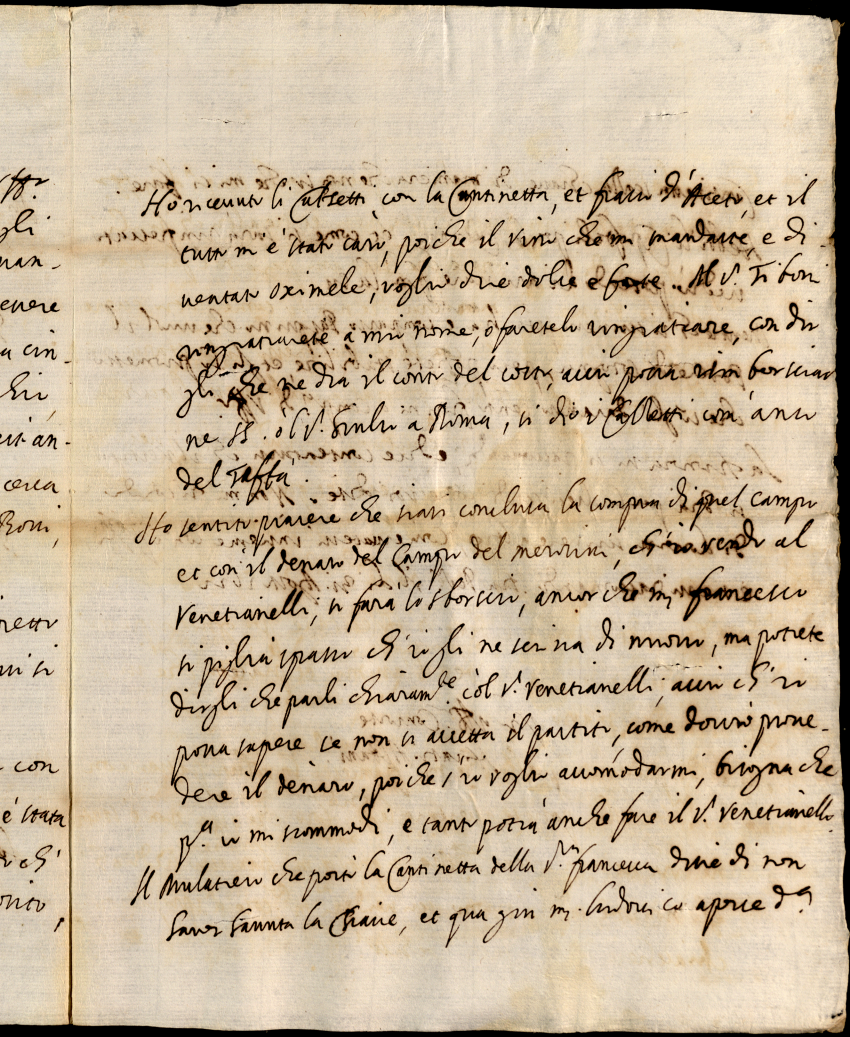 Ho riceuuto li Calzetti, con la Cantinetta, et fiaschi d'Aceto, et il
tutto m'è stato caro, poiche il vino che mi mandaste, è di-
uentato oximele, voglio dire dolce e forte. Al S.r Tiboni
ringratiarete à mio nome, ò faretelo ringratiare, con dir
gli che ne dia il conto del costo, acciò possa rimborsiar
ne il S.r Giulio a Roma, si di i Calzetti com'anco
del Taffta
Ho sentito piacere che siasi conclusa la compra di quel Campo
et con il denaro del Campo del merorini, ch'io vendo al
Venetianelli, si farà lo sborscio, ancor che m. francesco
si piglia spasso ch'io gli ne scriua di nuouo, ma potrete
dirgli che parli chiaram.te col S.r Venetianelli, acciò ch'io
possa sapere se non si accetta il partito, come douerò proue-
dere il denaro, poiche s'io voglio accomodarmi, bisogna che
p.a io mi scommodi, e tanto potrà anche fare il S.r Venetianelli.
Il Mulatiero che portò la Cantinetta della S.ra francesca dice di non
hauer hauuta la Chiaue, et qua giù m. Ludouico aperse d.a
gli
uan-
euere
a cin-
an-
cerca
con
è stata
ch'